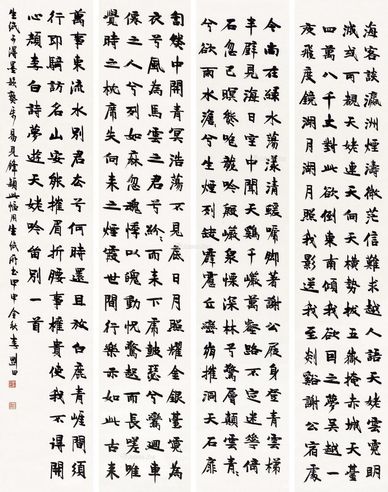 海客談瀛洲煙濤微茫信難求越人語天姥雲霓明
滅或可覩天姥連天向天橫勢拔五嶽掩赤城天臺
四萬八千丈對此欲倒東南傾我欲因之夢吳越一
夜飛度鏡湖月湖月照我影送我至剡谿謝公宿處
今尚在綠水蕩漾清猿啼腳著謝公屐身登青雲梯
半壁見海日空中聞天雞千巖萬壑路不定迷花倚
石忽已瞑熊咆龍吟殷巖泉慄深林兮驚層巔雲青々
兮欲雨水澹々兮生煙列缺霹靂丘巒崩摧洞天石扉
訇然中開青冥浩蕩不見底日月照耀金銀臺霓為
衣兮風為馬雲之君兮紛々而來下虎鼓瑟兮鸞迴車
僊之人兮列如麻忽魂悸以魄動怳驚起而長嗟唯
覺時之枕席失向來之煙霞世間行樂亦如此古來
萬事東流水別君去兮何時還且放白鹿青崖間須
行即騎訪名山安能摧眉折腰事權貴使我不得開
心顏李白詩夢遊天姥吟留別一首
生紙 甲申金秋